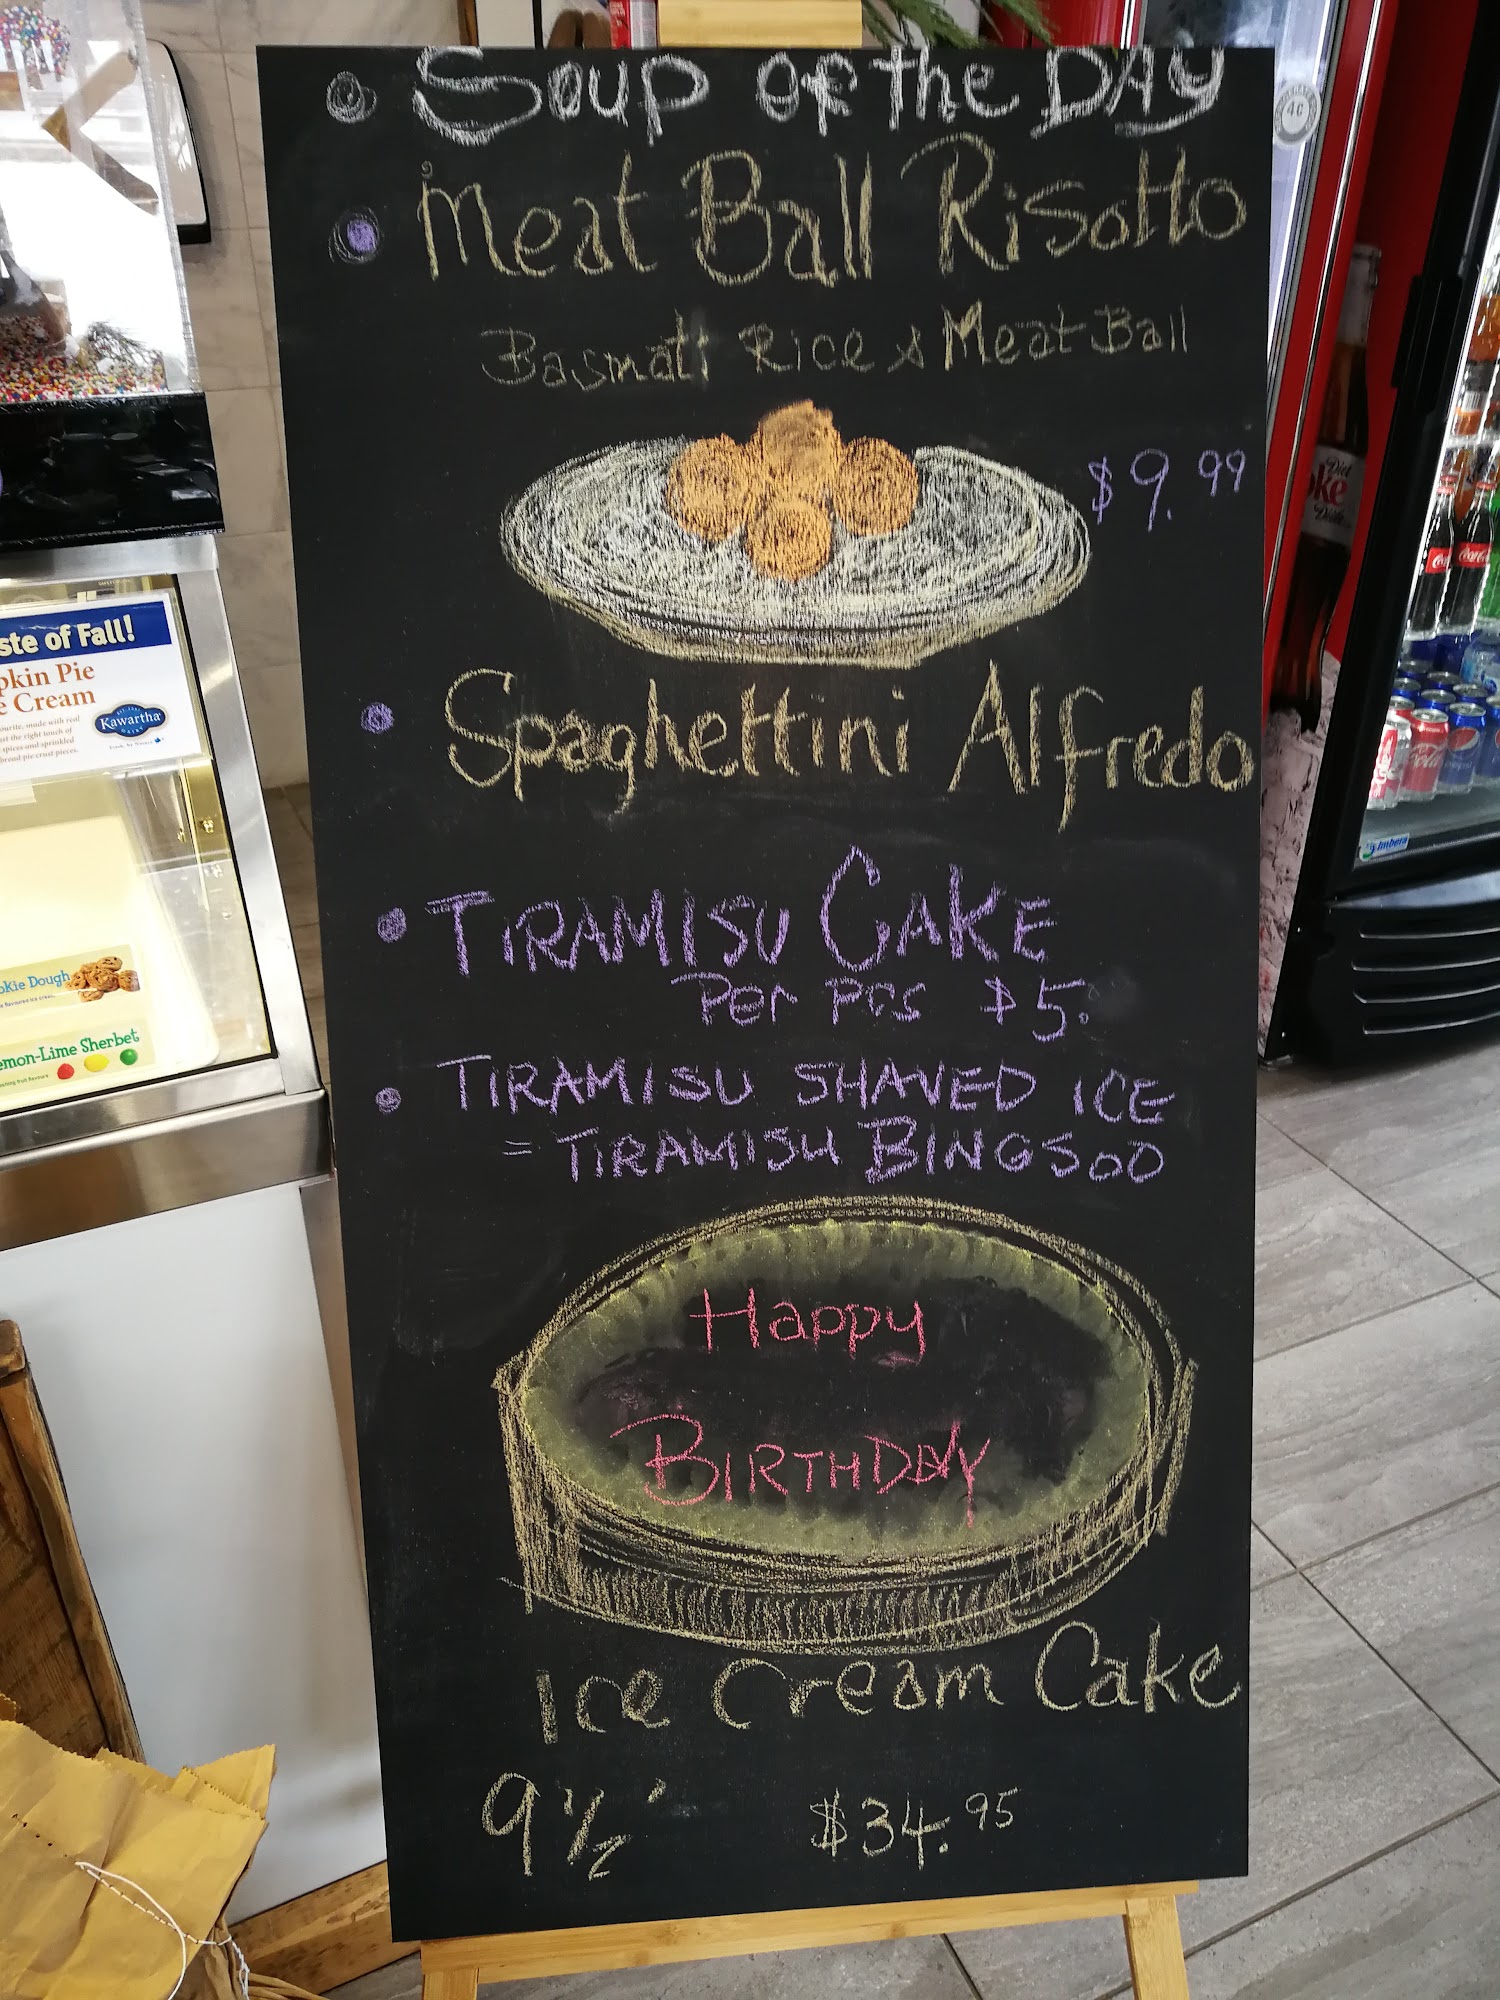 Soup of the DAY
Meat Ball Risotto
Basmati Rice & Meat Ball
$9.99
Spaghettini Alfredo
TIRAMISU CAKE
Per pcs $5.
TIRAMISU SHAVED ICE
= TIRAMISU BINGSOO
Happy
BIRTHDAY
Ice Cream Cake
9½'
$34.95
ste of Fall!
pkin Pie
e Cream
Kawartha
okie Dough
emon-Lime Sherbet
Diet
oke
Coca-Cola
pepsi
Imbera